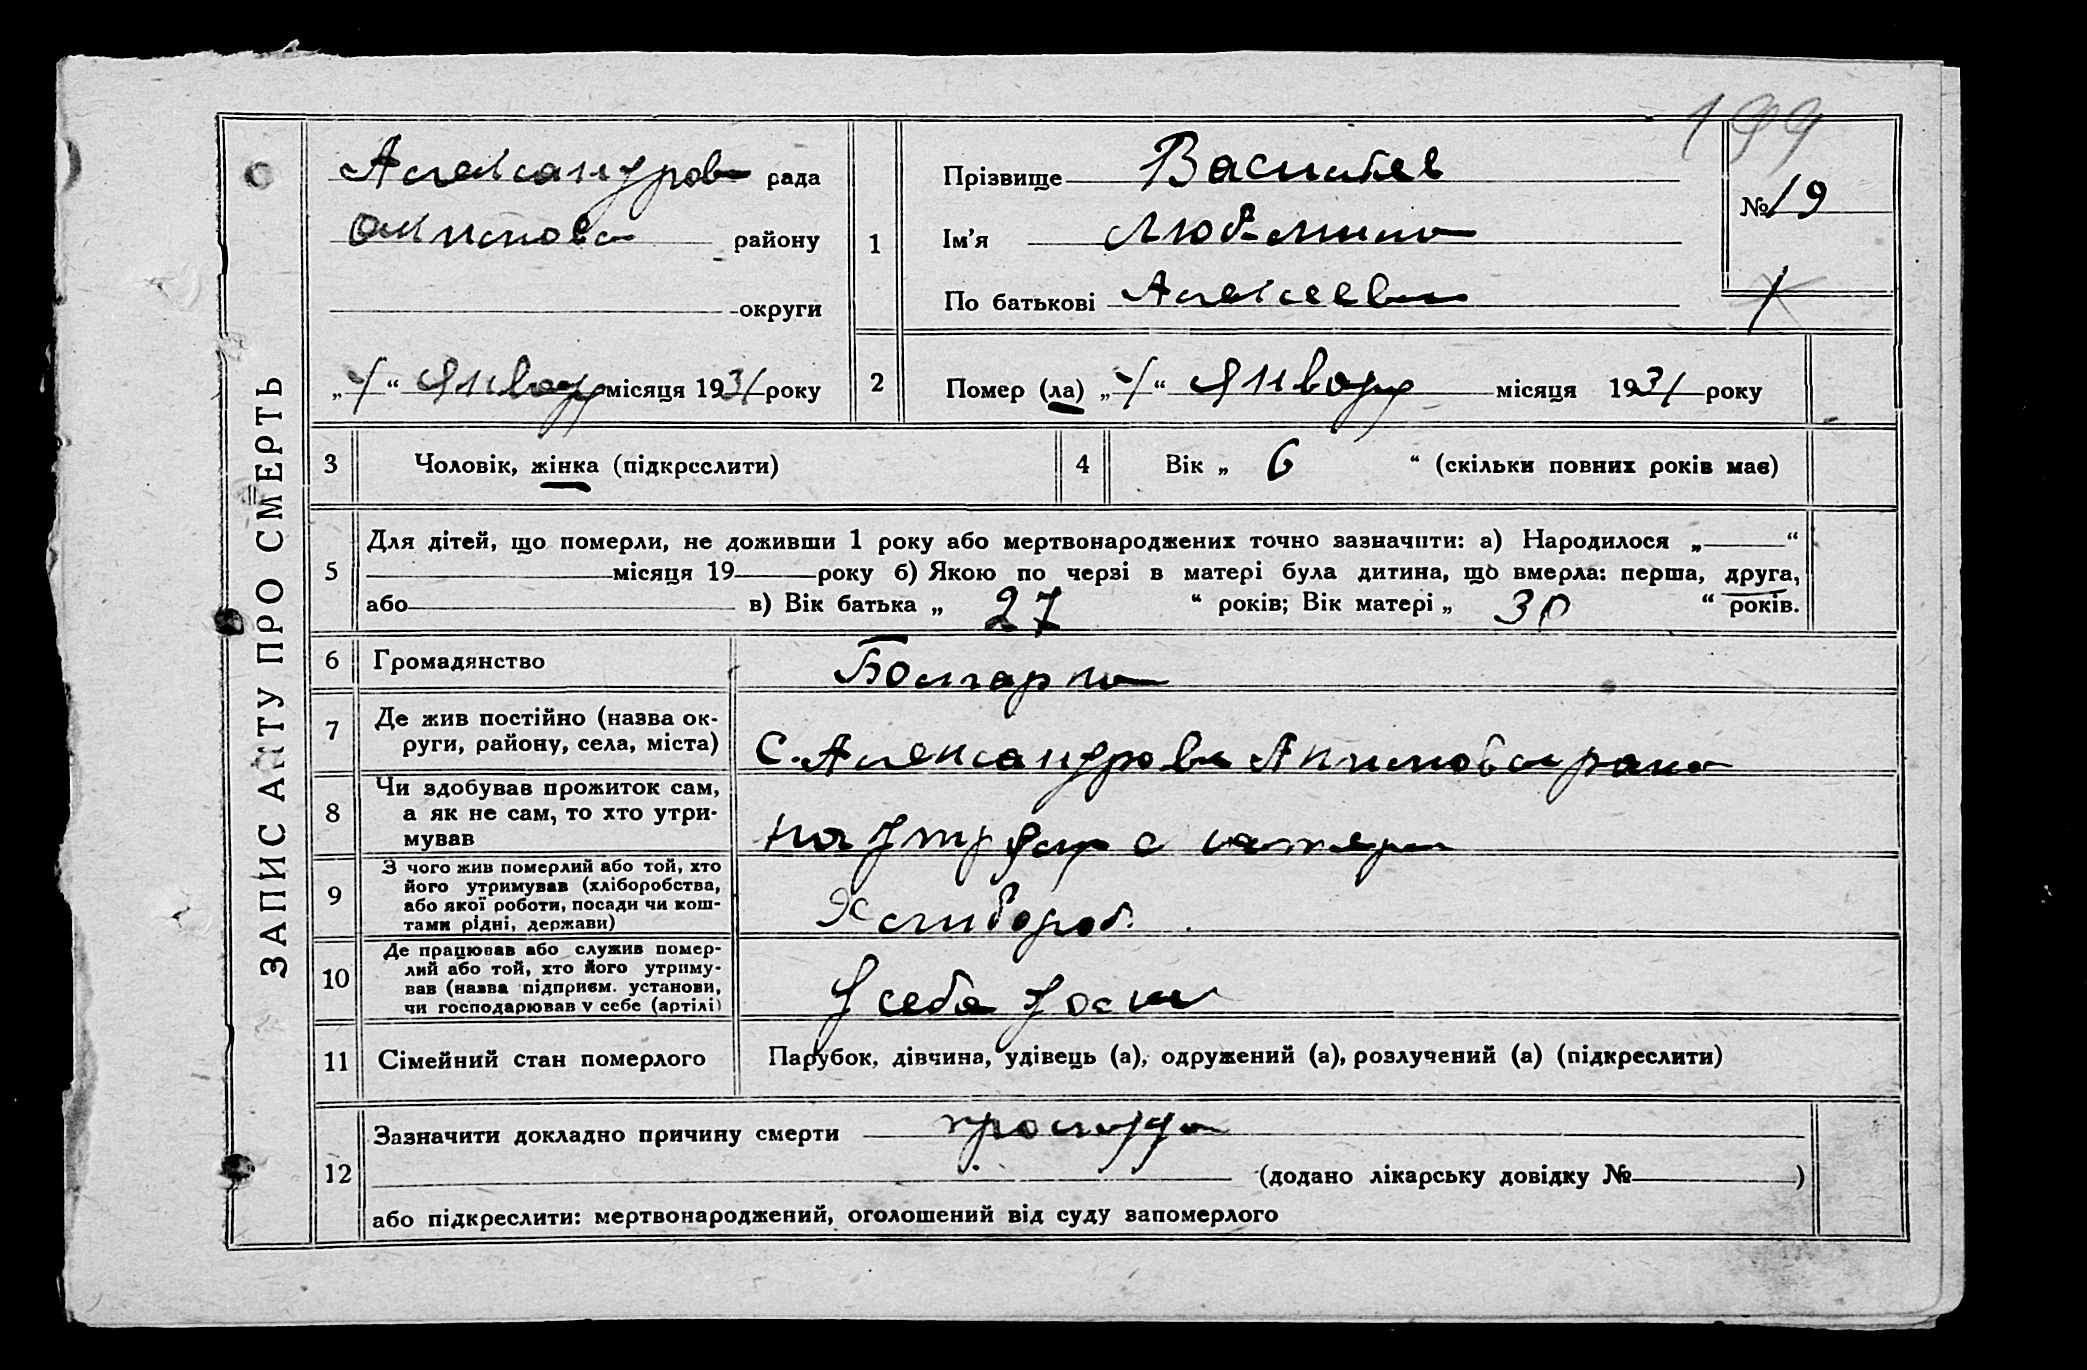 199
ЗАПИС АКТУ ПРО СМЕРТЬ
Александров рада
району
округи
„ “ Январ місяця 1931 року
1
Прізвище Васильев
Ім’я Людмила
По батькові Алексеевна
№ 19
2
Помер (ла) „ “ Январ місяця 1931 року
3 Чоловік, жінка (підкреслити)
4 Вік „ 6 “ (скільки повних років має)
5
Для дітей, що померли, не доживши 1 року або мертвонароджених точно зазначити: а) Народилося „ “
місяця 19 року б) Якою по черзі в матері була дитина, що вмерла: перша, друга,
або в) Вік батька „ 27 “ років; Вік матері „ 30 “ років.
6 Громадянство Болгарка
7 Де жив постійно (назва ок-
руги, району, села, міста)
С. Александровка Акимовск района
8 Чи здобував прожиток сам,
а як не сам, то хто утри-
мував
на у
9 З чого жив померлий або той, хто
його утримував (хліборобства,
або якої роботи, посади чи кош-
тами рідні, держави)
Хлибороб.
10 Де працював або служив помер-
лий або той, хто його утриму-
вав (назва підприєм. установи,
чи господарював у себе (артілі)
У себя дома
11 Сімейний стан померлого
Парубок, дівчина, удівець (а), одружений (а), розлучений (а) (підкреслити)
12
Зазначити докладно причину смерти простуда
(додано лікарську довідку № )
або підкреслити: мертвонароджений, оголошений від суду запомерлого